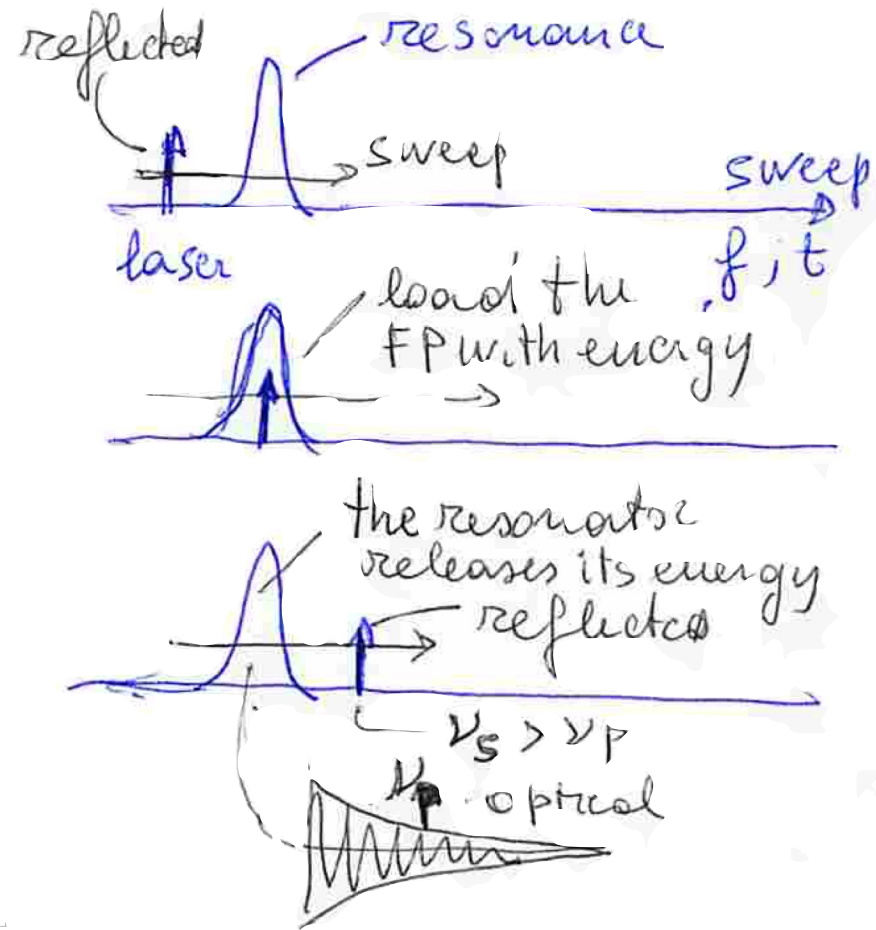 reflected
resonance
sweep
sweep
laser
f, t
load the
FP with energy
the resonator
releases its energy
reflected
νs > νp
νp optical